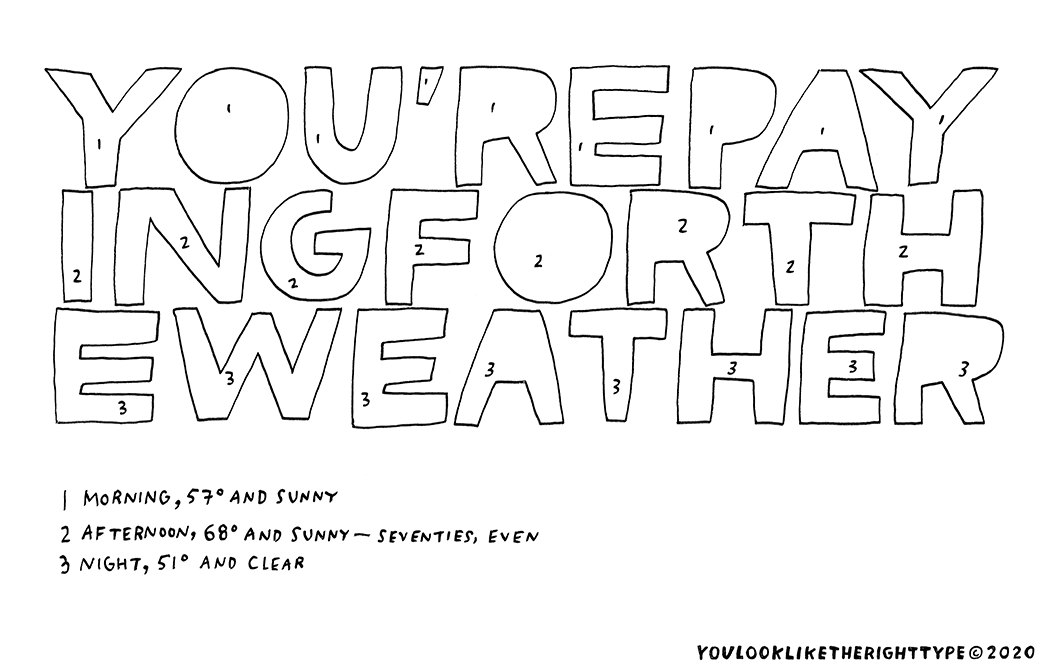 YOU'REPAY
INGFORTH
EWEATHER
1 MORNING, 57° AND SUNNY
2 AFTERNOON, 68° AND SUNNY — SEVENTIES, EVEN
3 NIGHT, 51° AND CLEAR
YOULOOKLIKETHERIGHTTYPE©2020